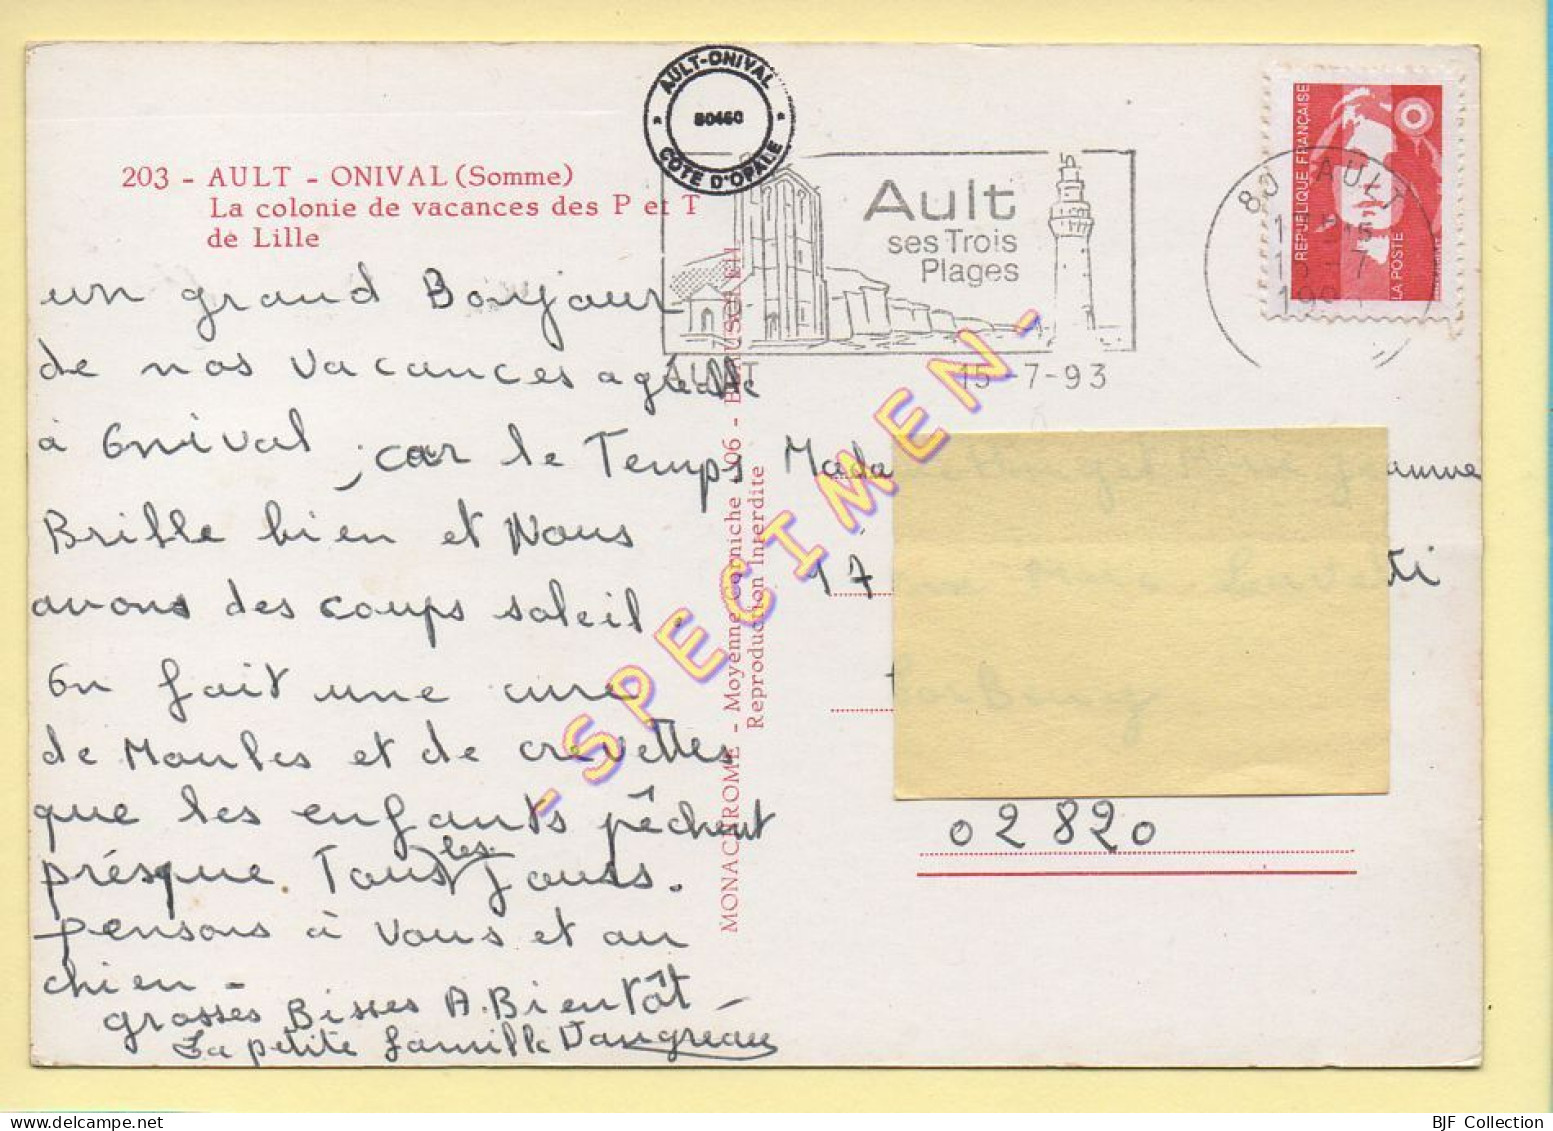 AULT-ONIVAL
80460
COTE D'OPALE
203 - AULT - ONIVAL (Somme)
La colonie de vacances des P et T
de Lille
Ault
ses Trois
Plages
AULT 15-7-93
80 AULT
15-7
RÉPUBLIQUE FRANÇAISE
LA POSTE
un grand Bonjour
de nos vacances
à Onival, car le Temps
Brille bien et Nous
avons des coups soleil.
On fait une cure
de Moules et de crevettes
que les enfants pêchent
présque Tous les Jours.
pensons à Vous et au
chien -
grosses Bisses A. Bientôt -
La petite famille Dangreau
MONACHROME - Moyenne Corniche - 06 - BEAUSOLEIL
Reproduction Interdite
-SPECIMEN-
Mada
17
02820
BJF Collection